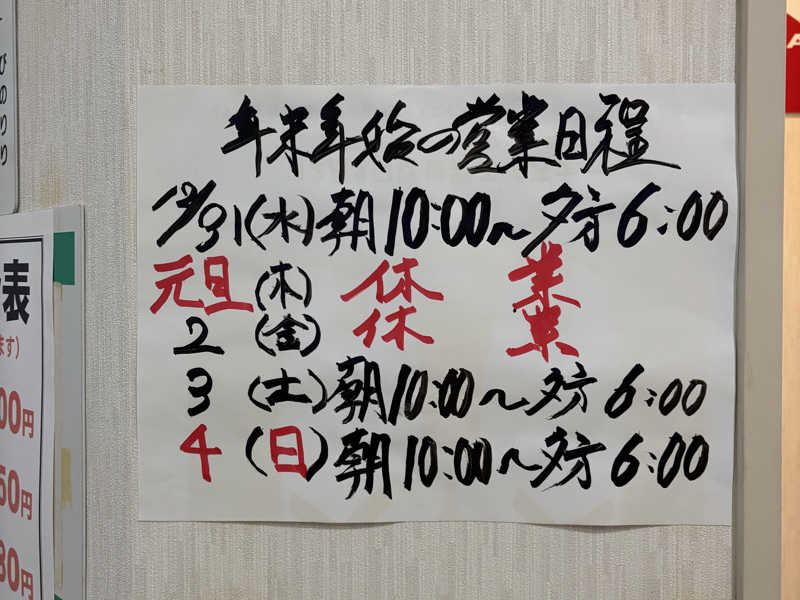 年末年始の営業日程
12/31(水)朝10:00〜夕方6:00
元旦(木) 休 業
2 (金) 休 業
3 (土)朝10:00〜夕方6:00
4 (日)朝10:00〜夕方6:00
びのりり
表
ます)
00円
50円
80円